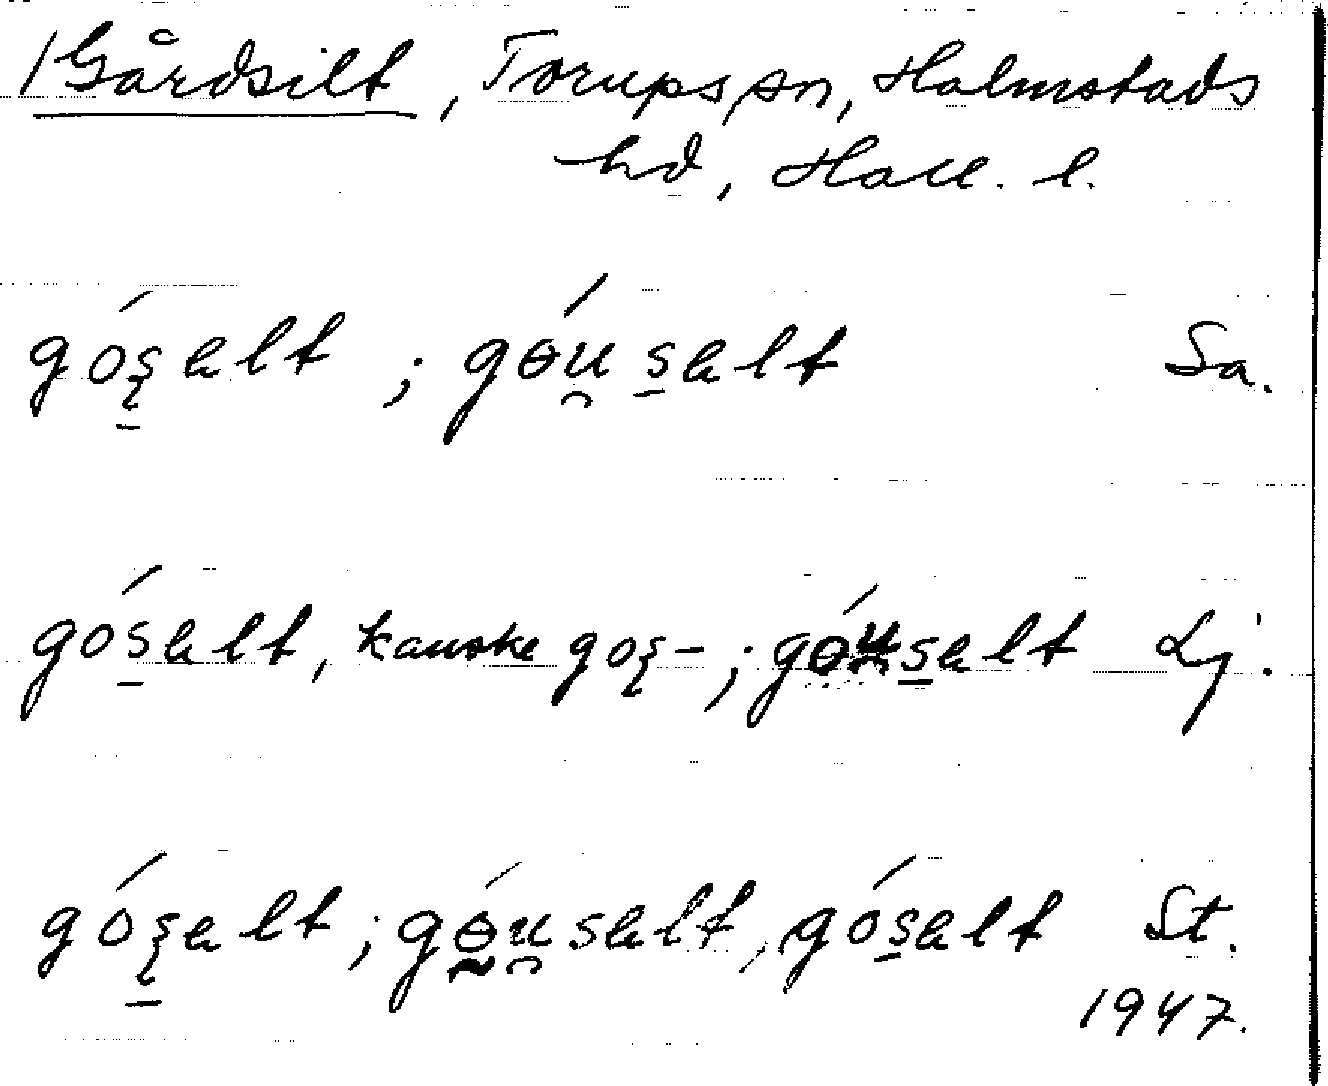 /Gårdsilt, Torups sn, Halmstads
hd, Hall. l.
gó̱ȿalt ; gɵ́u̯s̱alt Sa.
gós̱alt, kanske goȿ- ; gɵ́us̱alt Lj.
góȿ̱alt ; gɵ́u̯salt, gós̱alt St.
1947.